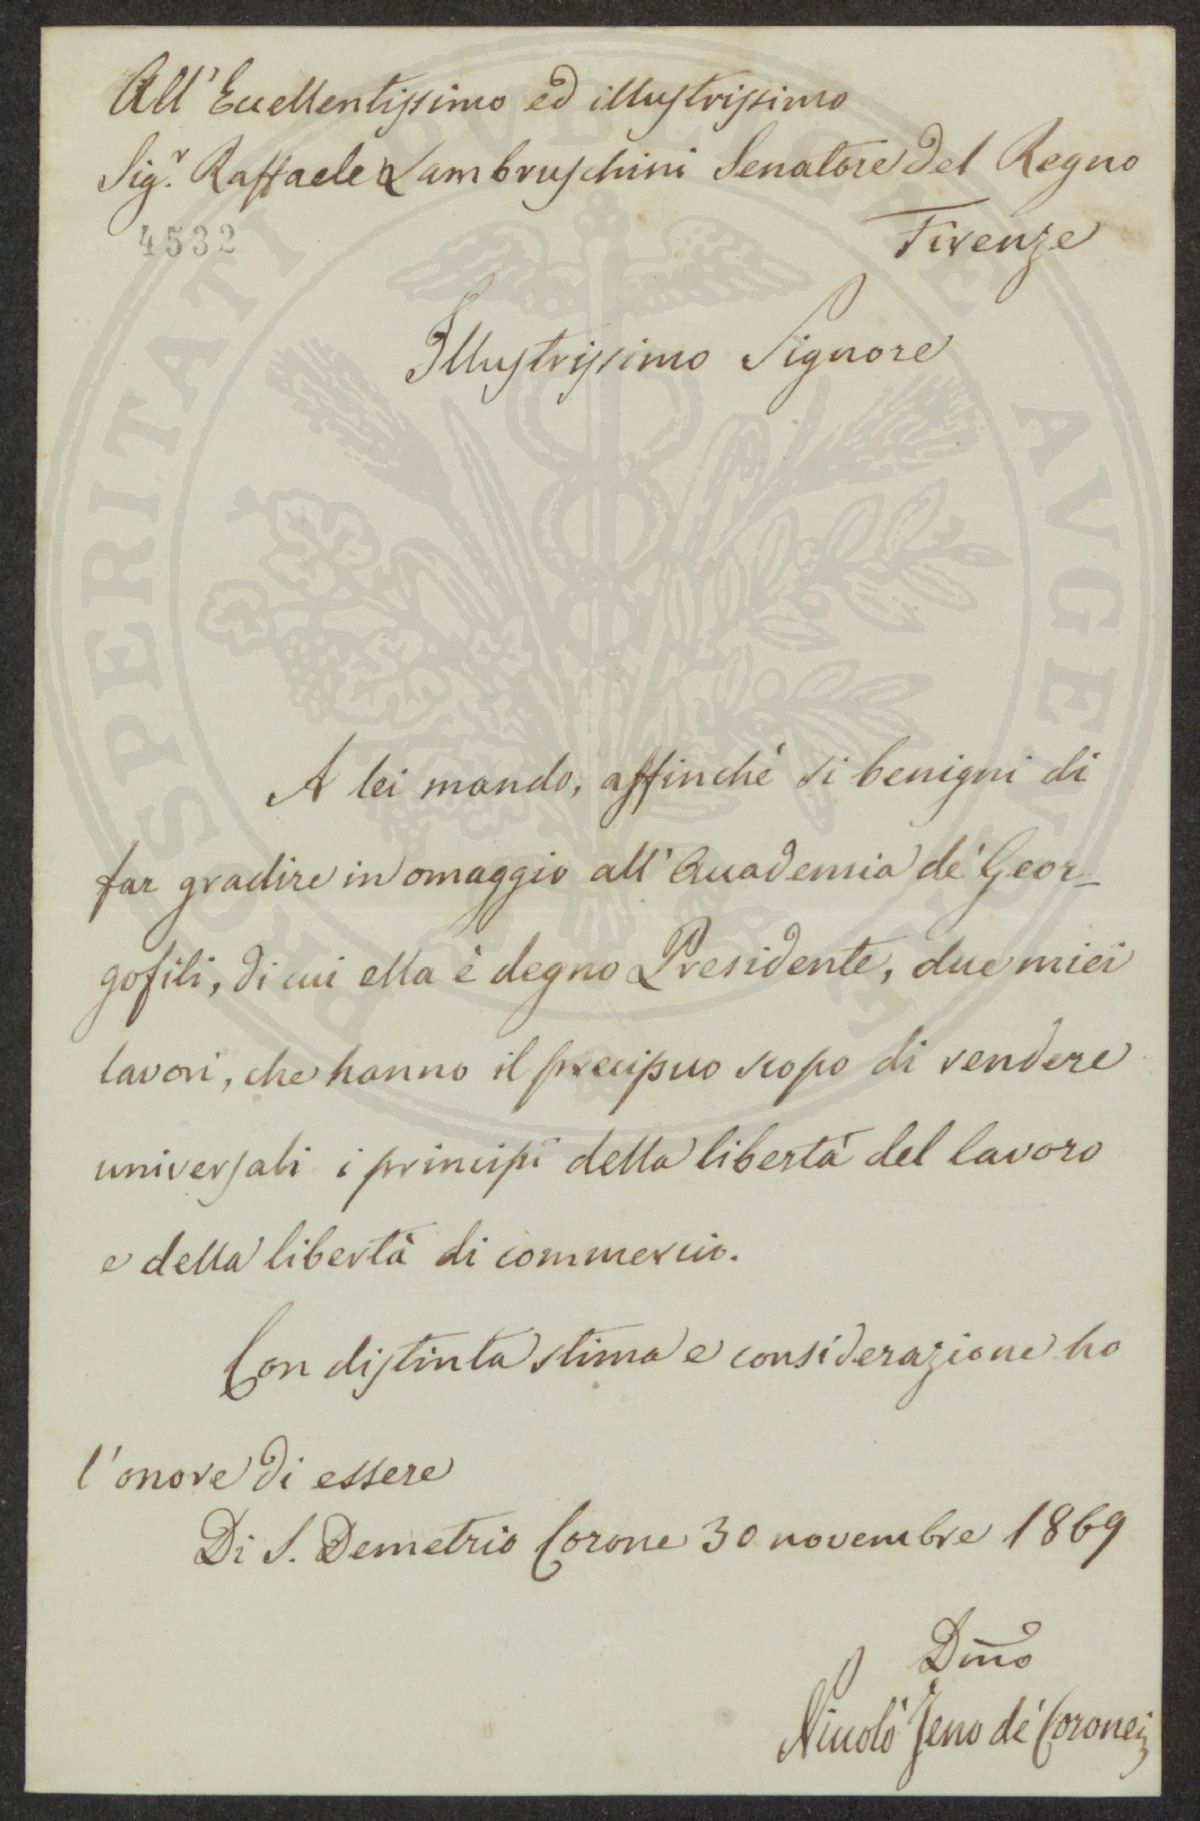 All' Eccellentissimo ed illustrissimo
Sig.r Raffaele Lambruschini Senatore del Regno
4532
Firenze
Illustrissimo Signore
A lei mando, affinchè si benigni di
far gradire in omaggio all' Accademia de' Geor-
gofili, di cui ella è degno Presidente, due miei
lavori, che hanno il precipuo scopo di rendere
universali i principi della libertà del lavoro
e della libertà di commercio.
Con distinta stima e considerazione ho
l'onore di essere
Di S. Demetrio Corone 30 novembre 1869
Dmo
Niccolò Jeno de' Coronei
PROSPERITATI PVBLICAE AVGENDAE